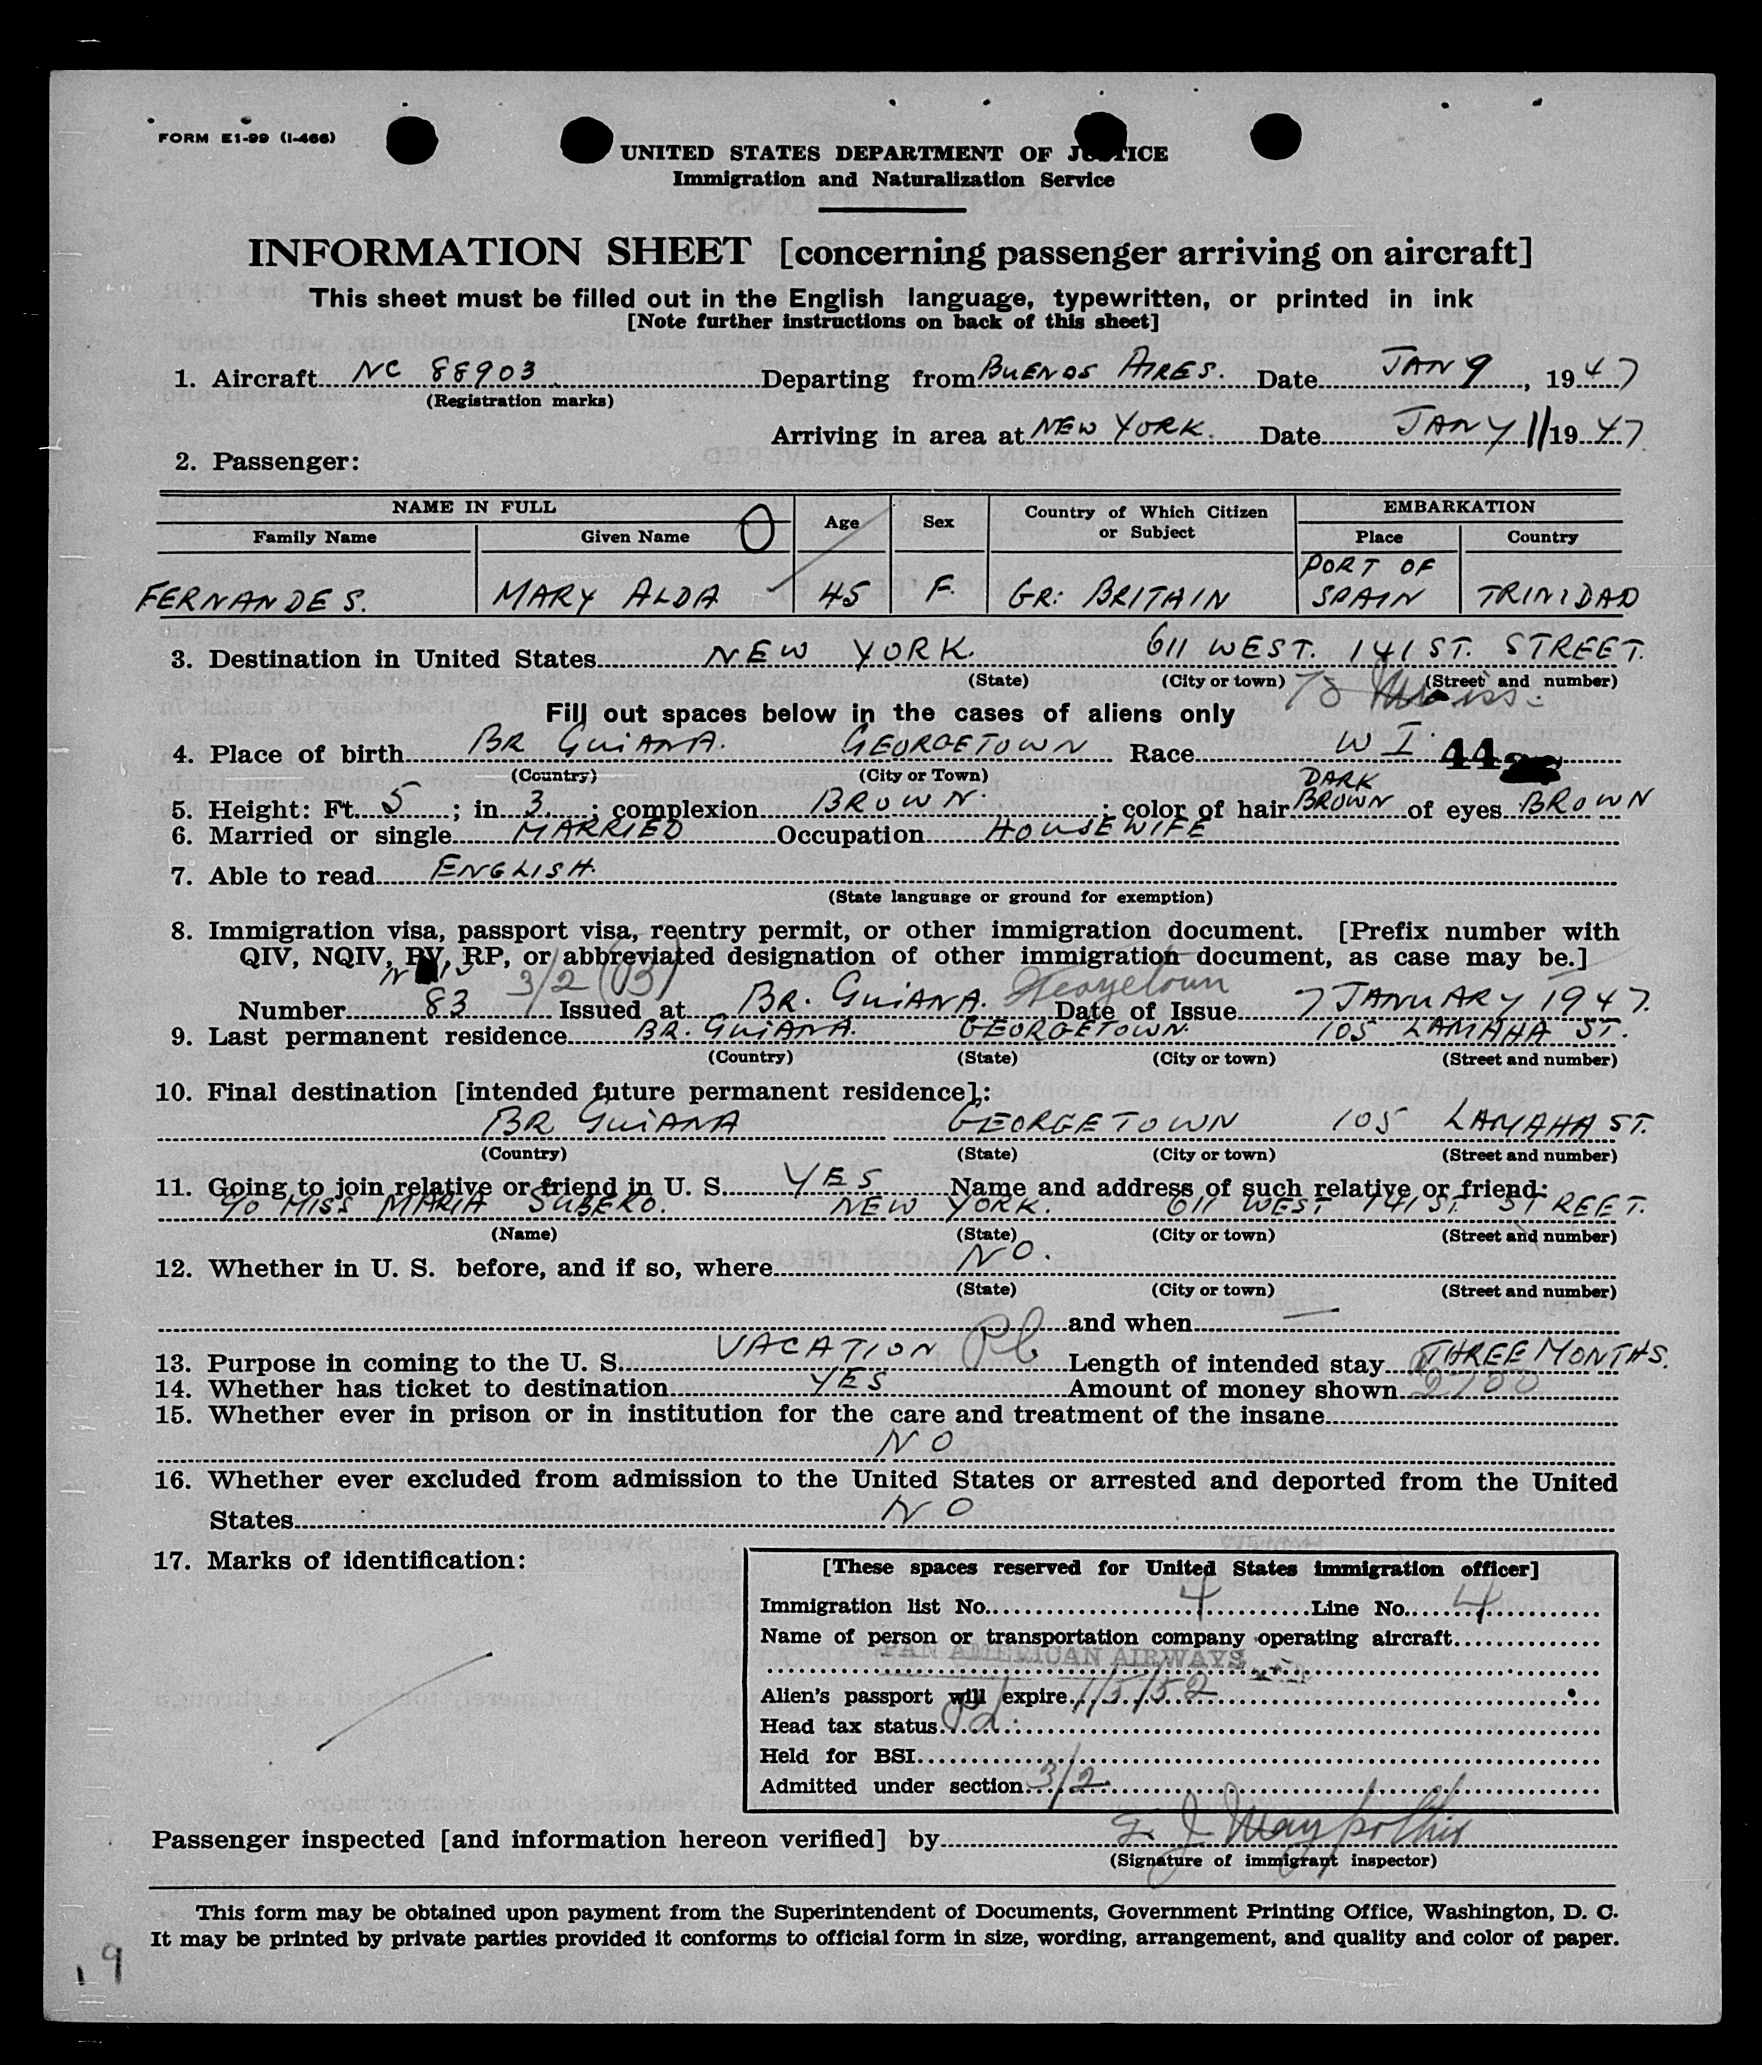 FORM E1-99 (I-466)
UNITED STATES DEPARTMENT OF JUSTICE
Immigration and Naturalization Service
INFORMATION SHEET [concerning passenger arriving on aircraft]
This sheet must be filled out in the English language, typewritten, or printed in ink
[Note further instructions on back of this sheet]
1. Aircraft NC 88903 Departing from BUENOS AIRES. Date JAN 9, 1947
(Registration marks)
Arriving in area at NEW YORK. Date JANY 11 1947
2. Passenger:
NAME IN FULL Age Sex Country of Which Citizen or Subject EMBARKATION
Family Name Given Name O Place Country
FERNANDES. MARY ALDA 45 F. GR: BRITAIN PORT OF SPAIN TRINIDAD
3. Destination in United States NEW YORK. 611 WEST. 141 ST. STREET.
(State) (City or town) (Street and number)
Fill out spaces below in the cases of aliens only
4. Place of birth BR GUIANA. GEORGETOWN Race W I. 44
(Country) (City or Town)
5. Height: Ft. 5; in. 3; complexion BROWN.; color of hair DARK BROWN of eyes BROWN
6. Married or single MARRIED Occupation HOUSEWIFE
7. Able to read ENGLISH.
(State language or ground for exemption)
8. Immigration visa, passport visa, reentry permit, or other immigration document. [Prefix number with
QIV, NQIV, PV, RP, or abbreviated designation of other immigration document, as case may be.]
3/2 (B)
Number 83 Issued at BR. GUIANA. Georgetown Date of Issue 7 JANUARY 1947.
9. Last permanent residence BR. GUIANA. GEORGETOWN. 105 LAMAHA ST.
(Country) (State) (City or town) (Street and number)
10. Final destination [intended future permanent residence]:
BR GUIANA GEORGETOWN 105 LAMAHA ST.
(Country) (State) (City or town) (Street and number)
11. Going to join relative or friend in U. S. YES Name and address of such relative or friend:
c/o MISS MARIA SUBERO. NEW YORK. 611 WEST 141 ST. STREET.
(Name) (State) (City or town) (Street and number)
12. Whether in U. S. before, and if so, where NO.
(State) (City or town) (Street and number)
and when —
13. Purpose in coming to the U. S. VACATION Pl Length of intended stay THREE MONTHS.
14. Whether has ticket to destination YES Amount of money shown 2700
15. Whether ever in prison or in institution for the care and treatment of the insane
NO
16. Whether ever excluded from admission to the United States or arrested and deported from the United
States NO
17. Marks of identification:
[These spaces reserved for United States immigration officer]
Immigration list No. 4 Line No. 4
Name of person or transportation company operating aircraft
PAN AMERICAN AIRWAYS
Alien's passport will expire 1/5/52
Head tax status Pd.
Held for BSI
Admitted under section 3/2
Passenger inspected [and information hereon verified] by
(Signature of immigrant inspector)
This form may be obtained upon payment from the Superintendent of Documents, Government Printing Office, Washington, D. C.
It may be printed by private parties provided it conforms to official form in size, wording, arrangement, and quality and color of paper.
19